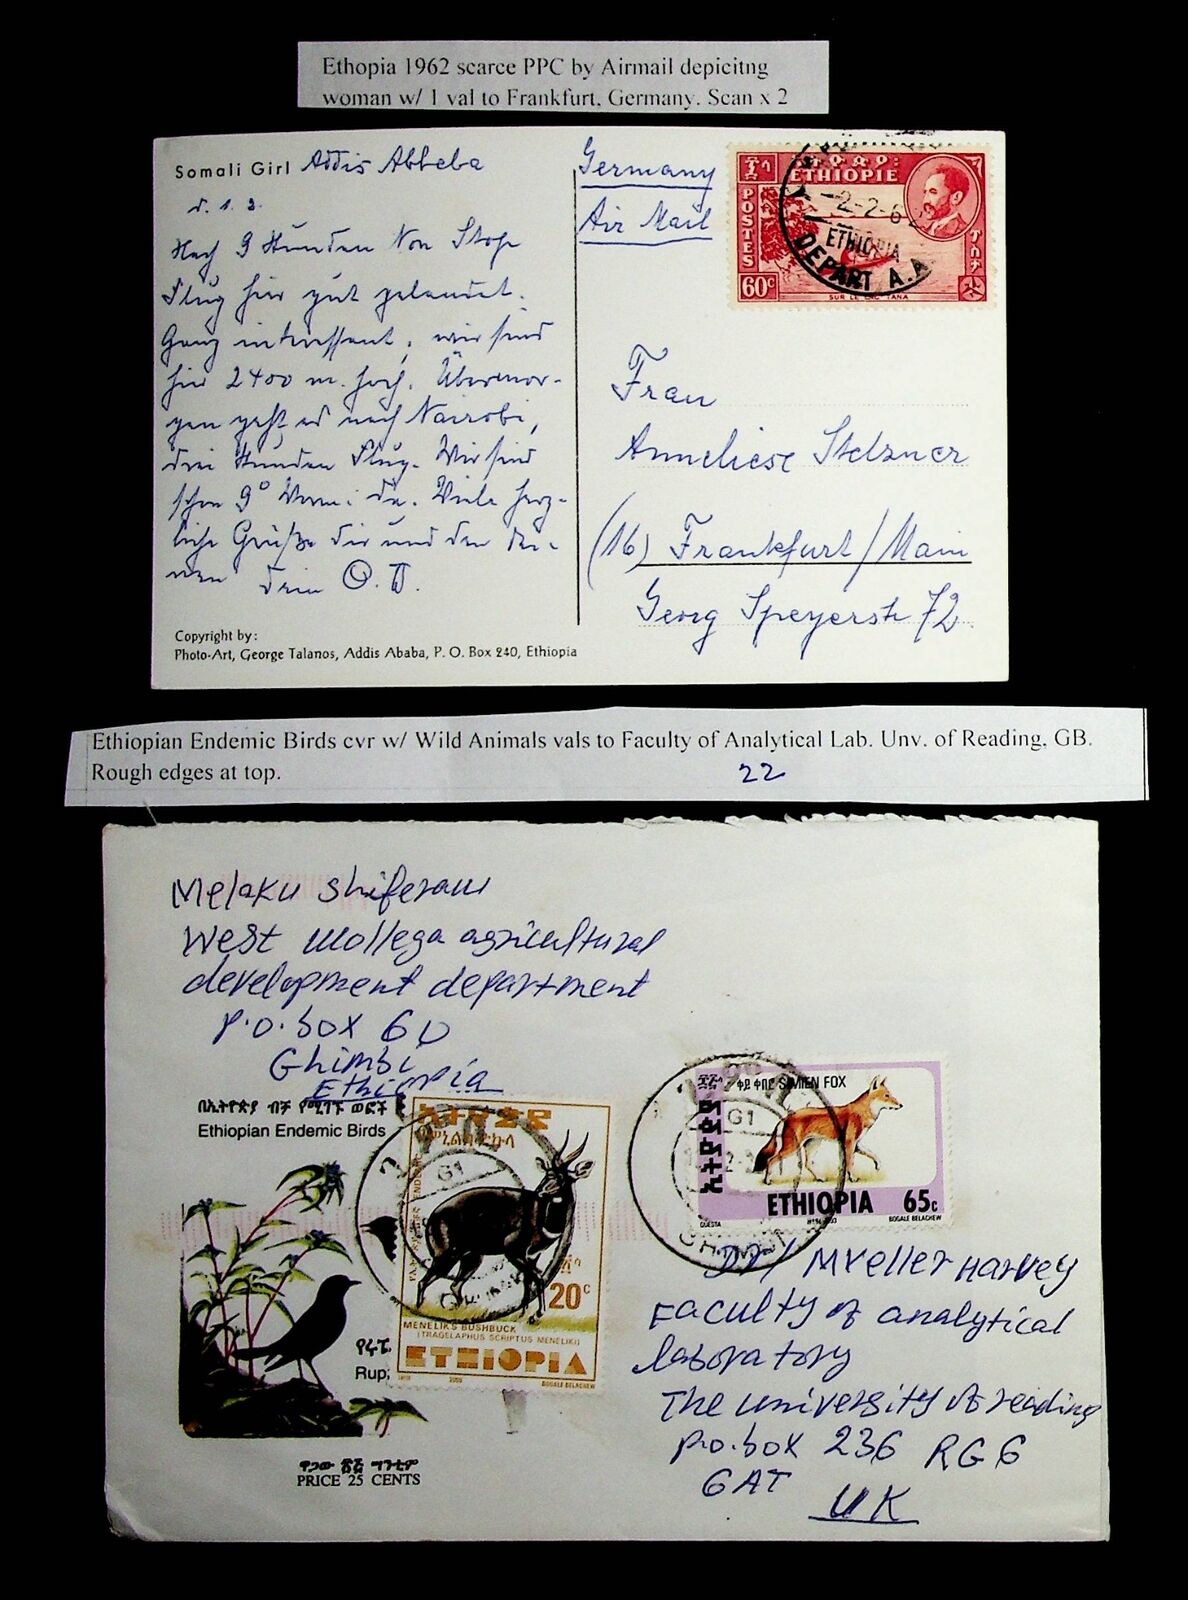 Ethopia 1962 scarce PPC by Airmail depicitng
woman w/ 1 val to Frankfurt, Germany. Scan x 2
Somali Girl Addis Abbeba
d. 1. 2.
Nach 9 Stunden Non Stop
Flug hier gut gelandet.
Ganz interessant, wir sind
hier 2400 m. hoch. Übermor-
gen geht es nach Nairobi,
drei Stunden Flug. Wir sind
schon 9° Vorm. da. Viele herz-
liche Grüße dir und den dei-
nen dein
Copyright by:
Photo-Art, George Talanos, Addis Ababa, P. O. Box 240, Ethiopia
Germany
Air Mail
ETHIOPIE
POSTES
60c
SUR LE LAC TANA
-2-2-62
ETHIOPIA
DEPART A.A
Frau
Anneliese Stelzner
(16) Frankfurt/Main
Georg Speyerstr 72
Ethiopian Endemic Birds cvr w/ Wild Animals vals to Faculty of Analytical Lab. Unv. of Reading, GB.
Rough edges at top.
22
Melaku Shiferaw
West wollega agricultural
development department
P.O.box 60
Ghimbi
Ethiopia
በኢትዮጵያ ብቻ የሚገኙ ወፎች
Ethiopian Endemic Birds
Rup
ዋጋው ሳንቲም
PRICE 25 CENTS
ኢትዮጵያ
20c
MENELIK'S BUSHBUCK
(TRAGELAPHUS SCRIPTUS MENELIKI)
ETHIOPIA
2000
BOGALE BELACHEW
G1
ኢትዮጵያ
ቀይ ቀበሮ SIMIEN FOX
ETHIOPIA 65c
QUESTA
BOGALE BELACHEW
G1
Mveller Harvey
Faculty of analytical
laboratory
The university of reading
P.o.box 236 RG6
6AT
UK